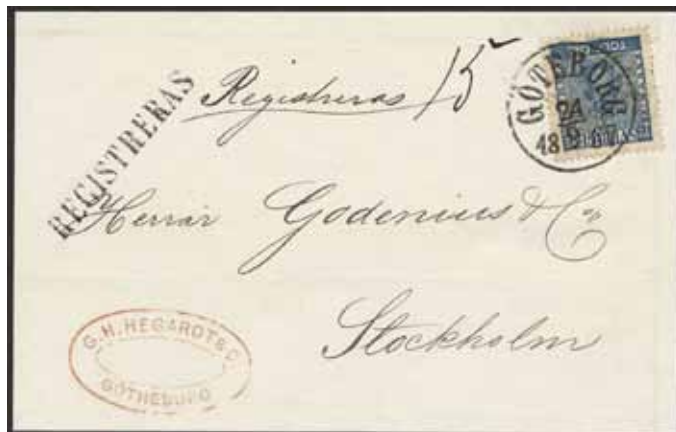 REGISTRERAS
Registreras 15
GÖTEBORG
24
9
1867
TOLF ÖR
Herrar Godenius & Co
Stockholm
G. H. HEGARDT & C.
GOTHEBURG